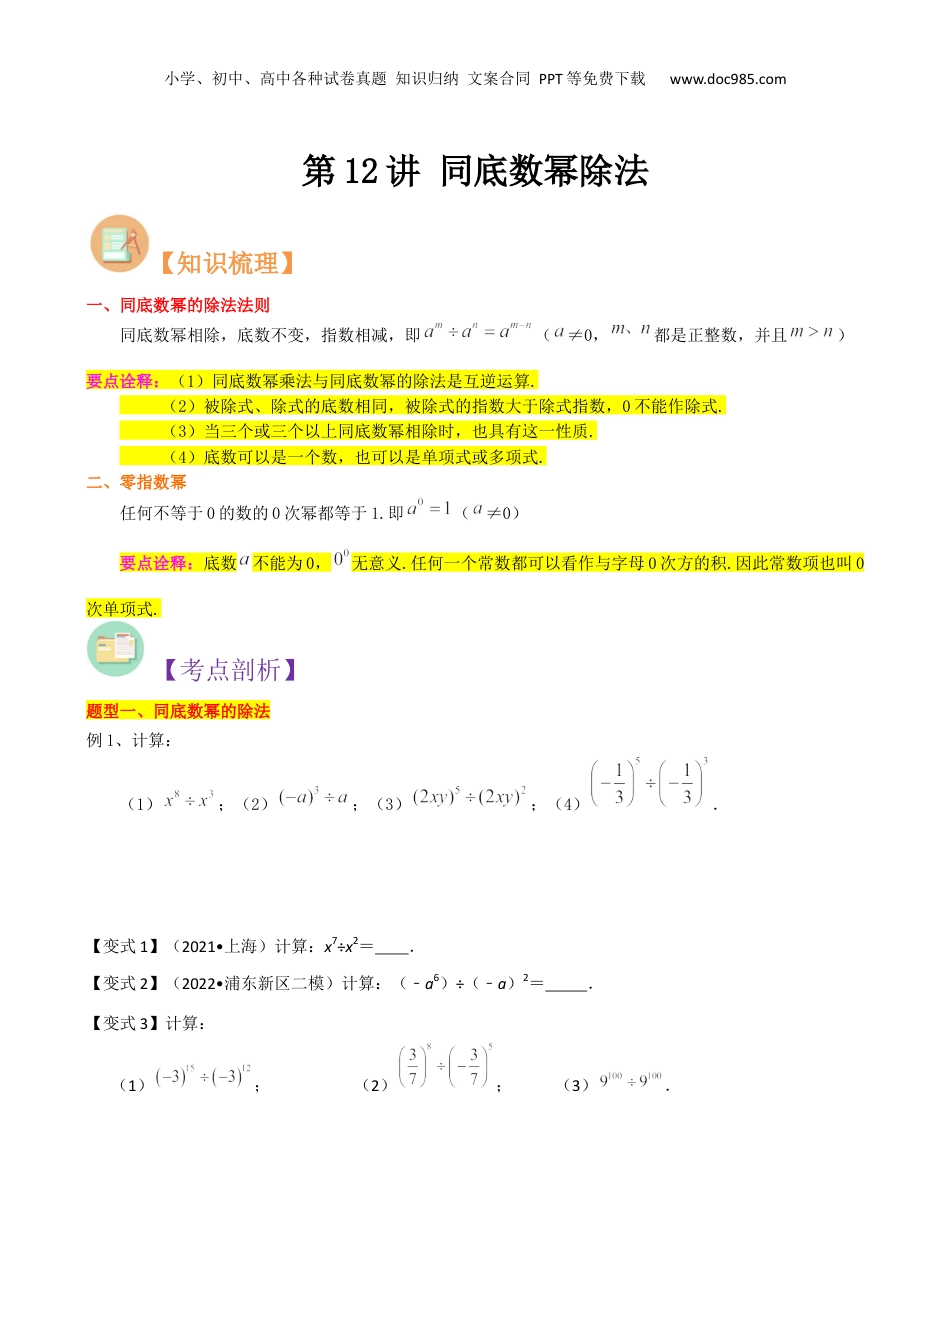 小学、初中、高中各种试卷真题 知识归纳 文案合同 PPT 等免费下载 www.doc985.com
第 12 讲 同底数幂除法
【知识梳理】
一、同底数幂的除法法则
同底数幂相除，底数不变，指数相减，即 a^m ÷ a^n = a^(m−n)（a ≠0，m、n 都是正整数，并且 m > n）
要点诠释：（1）同底数幂乘法与同底数幂的除法是互逆运算.
（2）被除式、除式的底数相同，被除式的指数大于除式指数，0 不能作除式.
（3）当三个或三个以上同底数幂相除时，也具有这一性质.
（4）底数可以是一个数，也可以是单项式或多项式.
二、零指数幂
任何不等于 0 的数的 0 次幂都等于 1.即 a^0 = 1（a ≠0）
要点诠释：底数 a 不能为 0，0^0 无意义.任何一个常数都可以看作与字母 0 次方的积.因此常数项也叫 0
次单项式.
【考点剖析】
题型一、同底数幂的除法
例 1、计算：
（1）x^8 ÷ x^3；（2）(−a)^3 ÷ a；（3）(2xy)^5 ÷ (2xy)^2；（4）(−1/3)^5 ÷ (−1/3)^3．
【变式 1】（2021•上海）计算：x^7÷x^2＝____．
【变式 2】（2022•浦东新区二模）计算：（﹣a^6）÷（﹣a）^2＝_____．
【变式 3】计算：
（1）(−3)^15 ÷ (−3)^12； （2）(3/7)^8 ÷ (−3/7)^5； （3）9^100 ÷ 9^100．